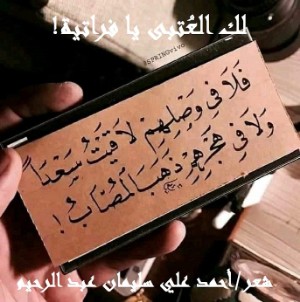 لكِ العُتبى يا فراتية!
فَلَا فِي وَصْلِهِمْ لَاقَيْتُ سَعْدًا
وَلَا فِي هَجْرِهِمْ ذَهَبَ الْمُصَابُ!
شعر/أحمد علي سليمان عبد الرحيم